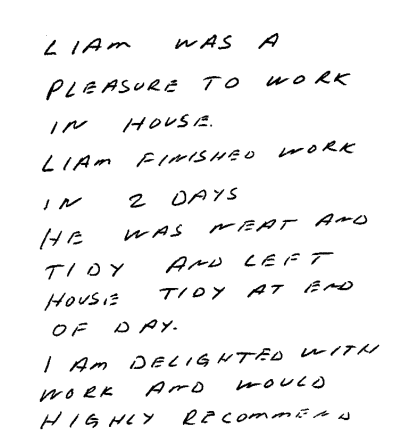 LIAM WAS A
PLEASURE TO WORK
IN HOUSE.
LIAM FINISHED WORK
IN 2 DAYS
HE WAS NEAT AND
TIDY AND LEFT
HOUSE TIDY AT END
OF DAY.
I AM DELIGHTED WITH
WORK AND WOULD
HIGHLY RECOMMEND